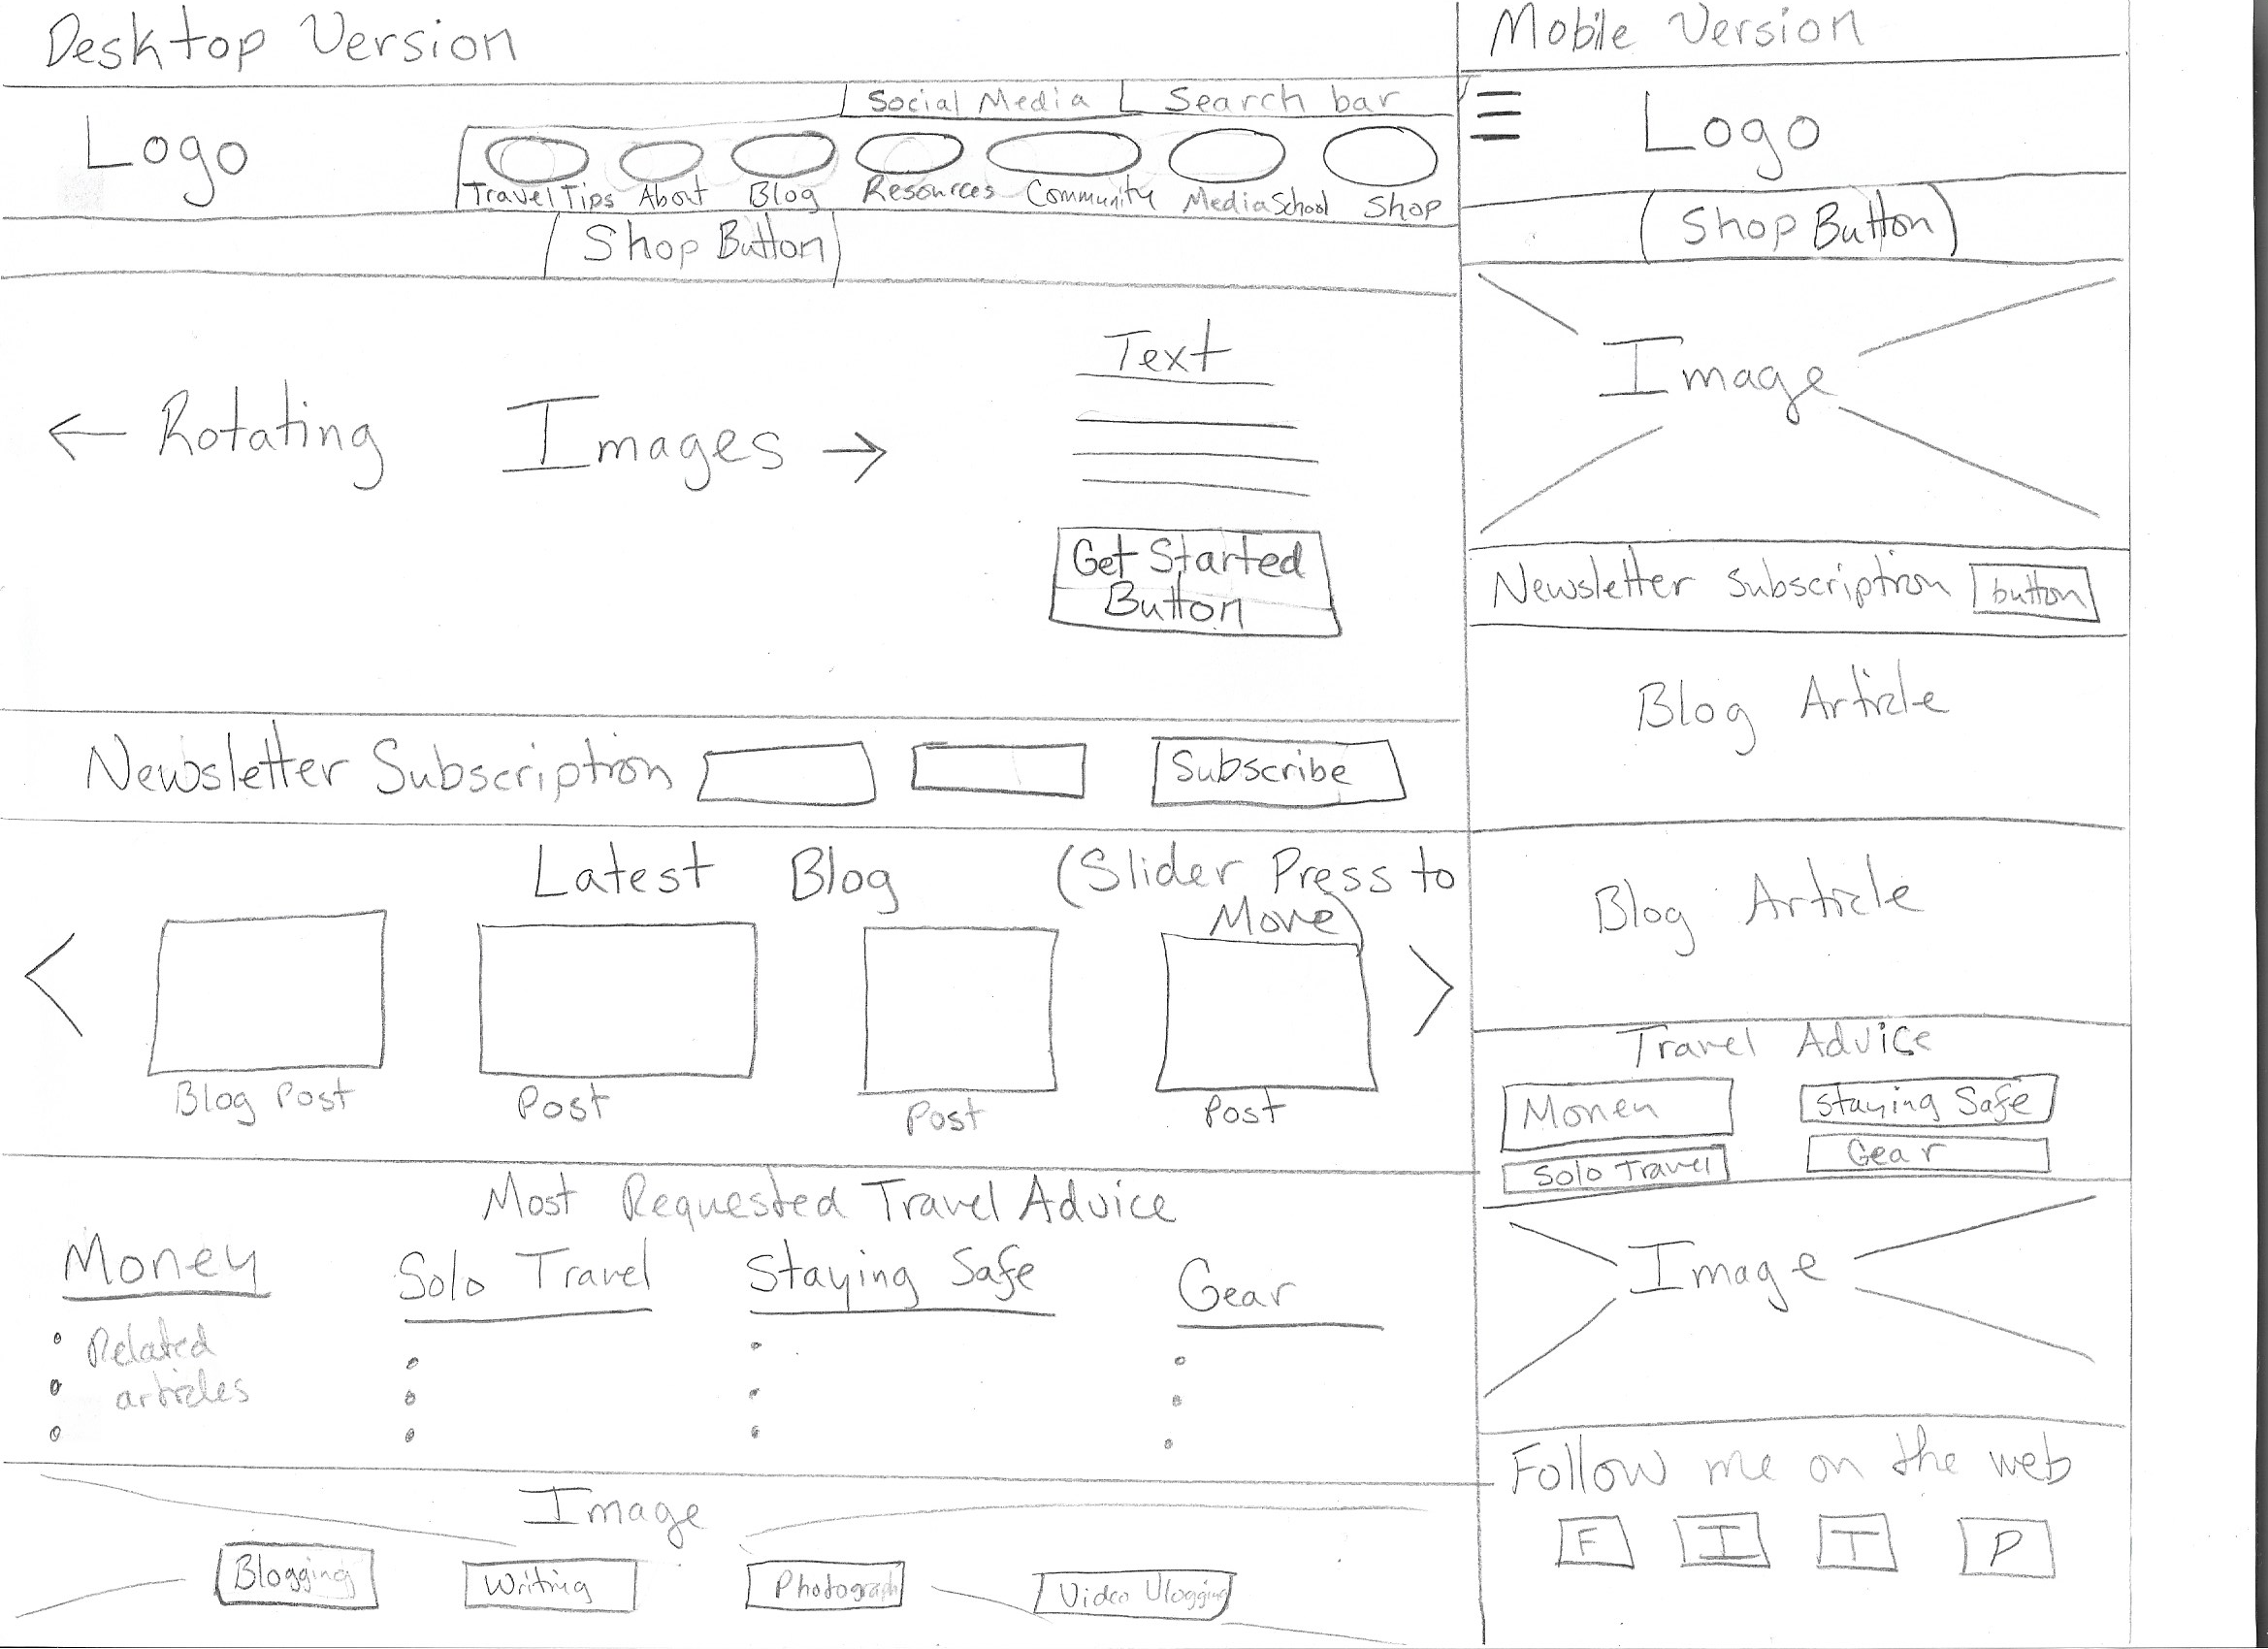 Desktop Version
Social Media
Search bar
Logo
Travel Tips
About
Blog
Resources
Community
Media School
Shop
Shop Button
Text
← Rotating Images →
Get Started
Button
Newsletter Subscription
Subscribe
Latest Blog
(Slider Press to
Move)
Blog Post
Post
Post
Post
Most Requested Travel Advice
Money
Solo Travel
Staying Safe
Gear
Related
articles
Image
Blogging
Writing
Photograph
Video Vlogging
Mobile Version
Logo
(Shop Button)
Image
Newsletter Subscription
button
Blog Article
Blog Article
Travel Advice
Money
Staying Safe
Solo Travel
Gear
Image
Follow me on the web
F
I
T
P